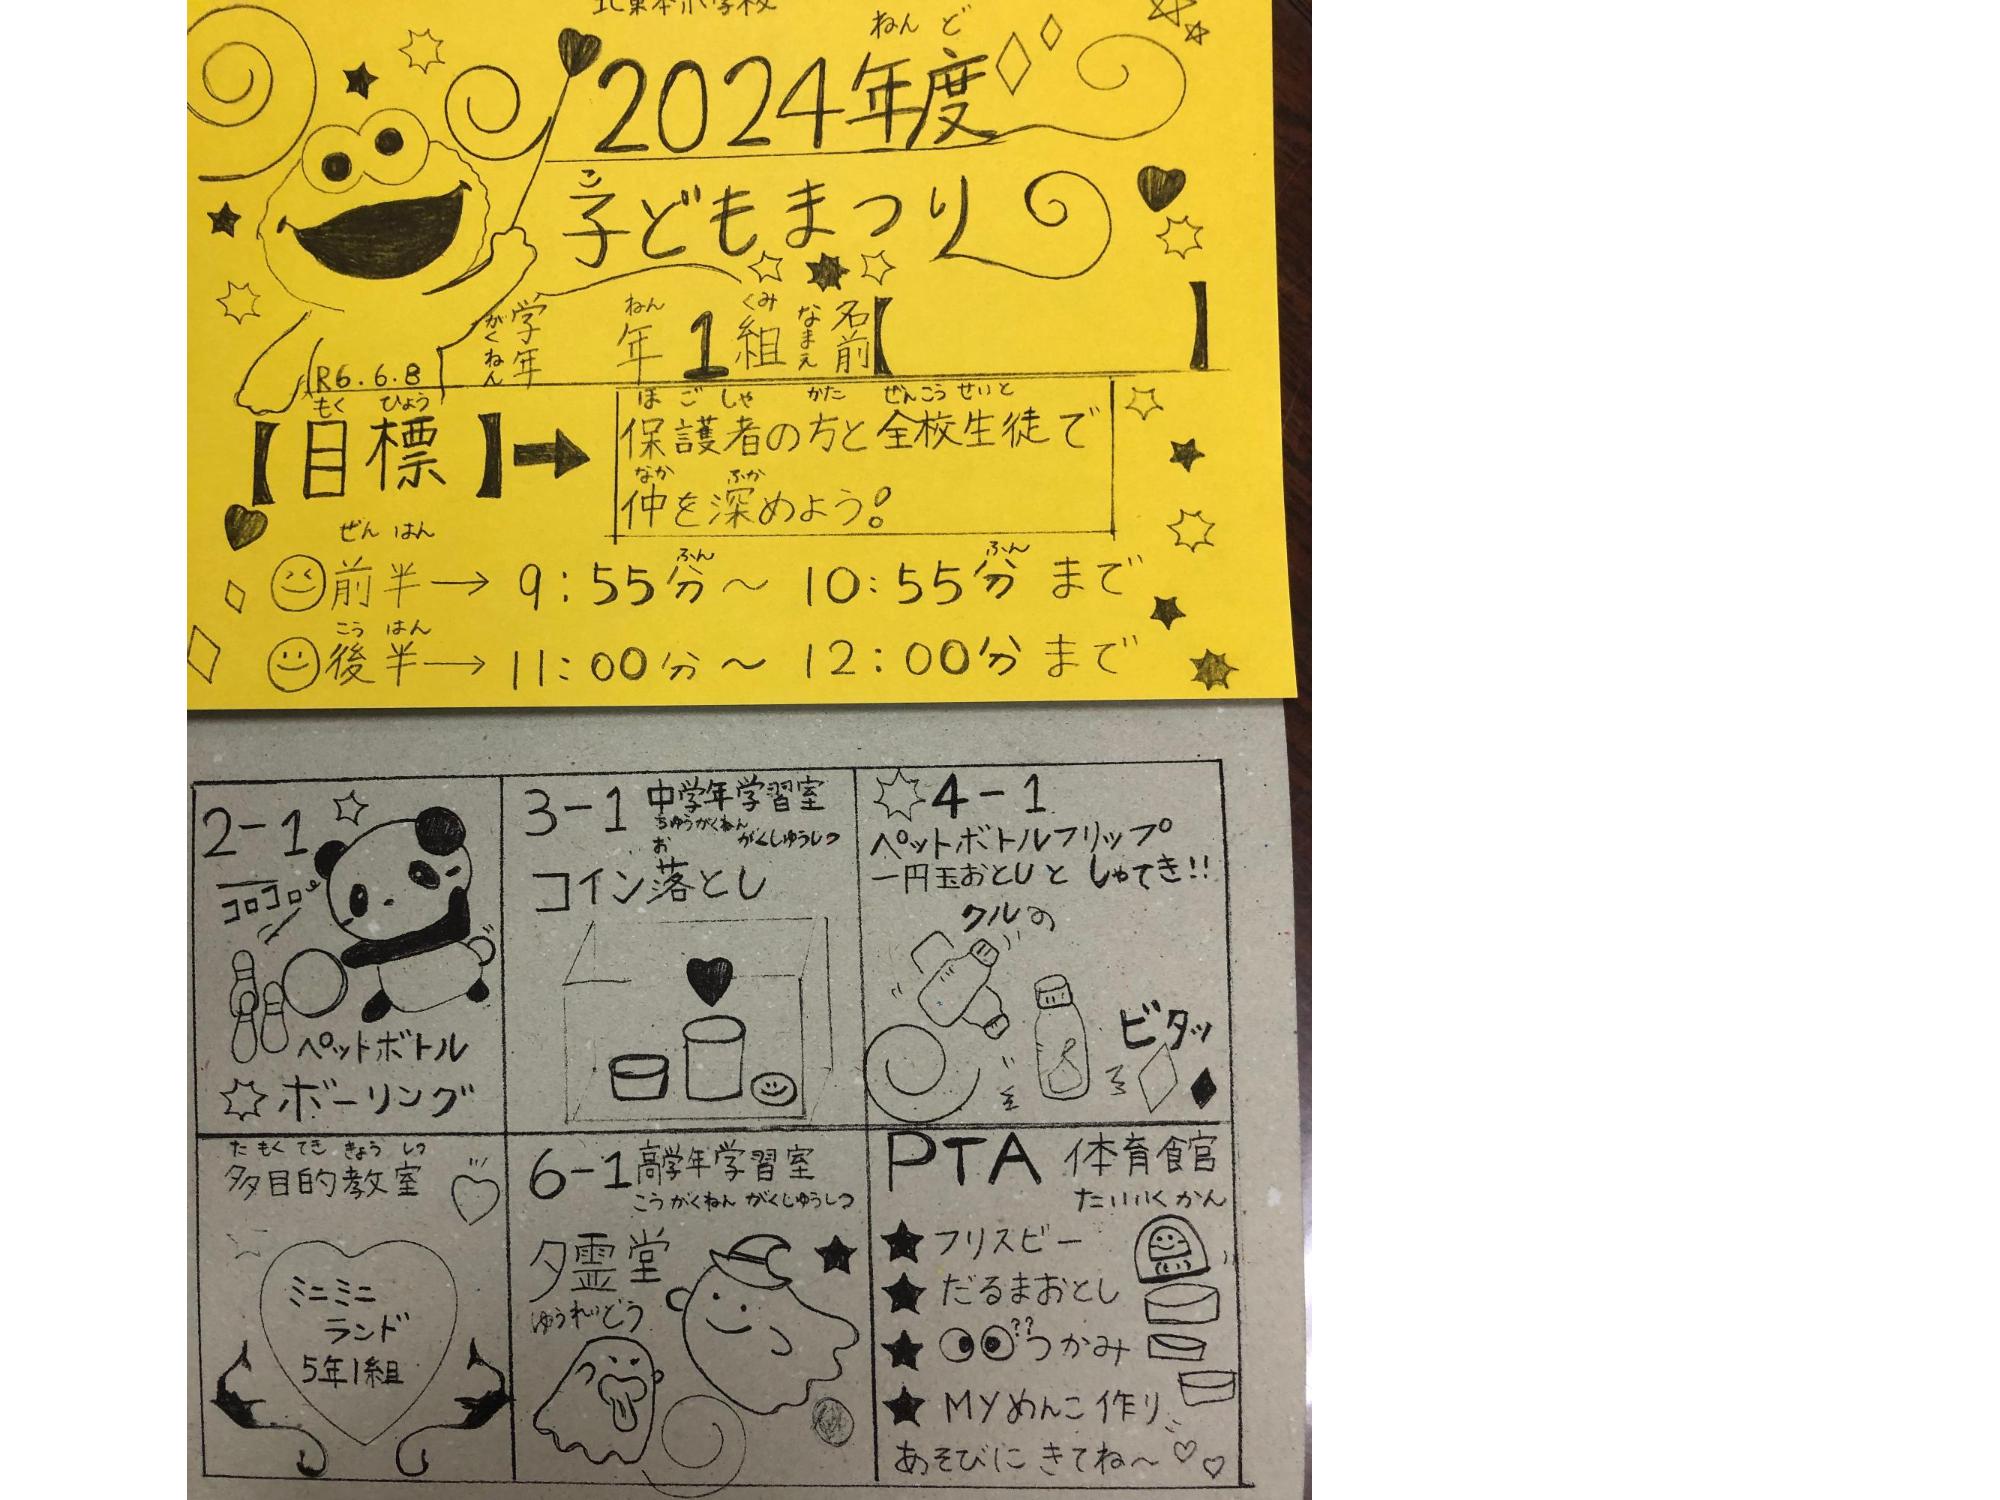 2024年度
ねん ど
子どもまつり
こ
学年 年1組 名前【 】
がくねん ねん くみ なまえ
R6.6.8
もく ひょう
【目標】→
ほ ご しゃ かた ぜんこう せいと
保護者の方と全校生徒で
なか ふか
仲を深めよう!
ぜん はん
前半→ 9:55分〜 10:55分 まで
ふん ふん
こう はん
後半→ 11:00分〜 12:00分 まで
2-1
コロコロ
ペットボトル
ボーリング
3-1 中学年学習室
ちゅうがくねん がくしゅうしつ
お
コイン落とし
4-1
ペットボトルフリップ
一円玉おとしと しゃてき!!
クルの
ビタッ
た もく てき きょう しつ
多目的教室
ミニミニ
ランド
5年1組
6-1 高学年学習室
こうがくねん がくしゅうしつ
夕霊堂
ゆうれいどう
PTA 体育館
たいいく かん
★フリスビー
★だるまおとし
★??つかみ
★MYめんこ作り
あそびにきてね〜♡♡